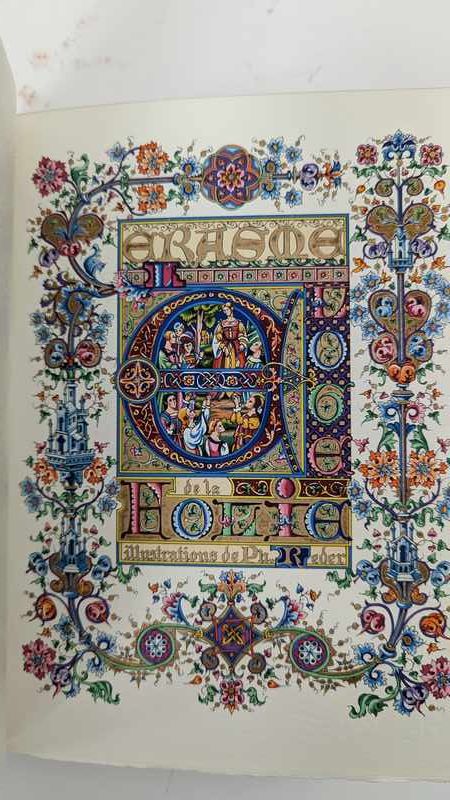 ERASME
L'ELOGE
de la
FOLIE
illustrations de Ph. Reder